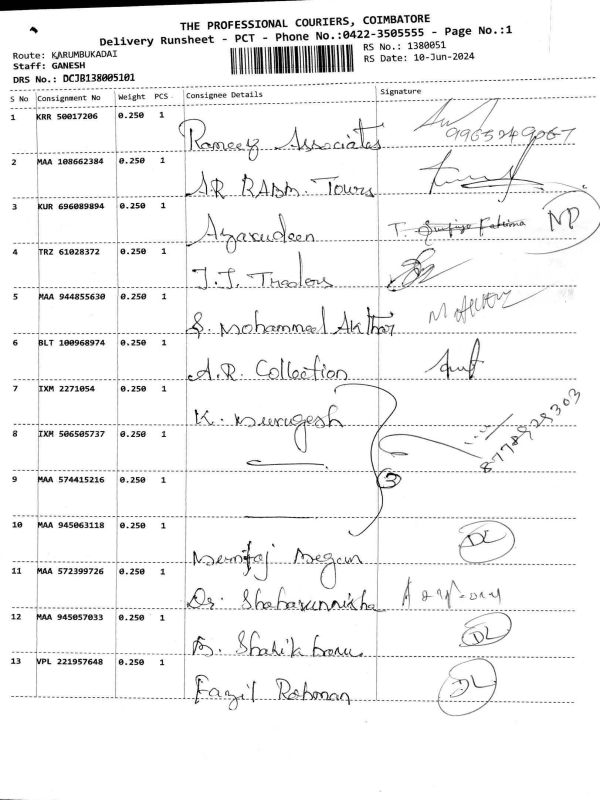 THE PROFESSIONAL COURIERS, COIMBATORE
Delivery Runsheet - PCT - Phone No.:0422-3505555 - Page No.:1
Route: KARUMBUKADAI
RS No.: 1380051
Staff: GANESH
RS Date: 10-Jun-2024
DRS No.: DCJB138005101
S No Consignment No Weight PCS Consignee Details Signature
1 KRR 50017206 0.250 1 Rameez Associates 9965249067
2 MAA 108662384 0.250 1 A.R RABM. Tours
3 KUR 696089894 0.250 1 Azarudeen T. Fathima ND
4 TRZ 61028372 0.250 1 J.J. Traders
5 MAA 944855630 0.250 1 S. Mohammed Akthar
6 BLT 100968974 0.250 1 A.R. Collection
7 IXM 2271054 0.250 1 K. Murugesh
8 IXM 506505737 0.250 1 8778929303
9 MAA 574415216 0.250 1 3
10 MAA 945063118 0.250 1 Begum DL
11 MAA 572399726 0.250 1 Dr. Shabarunnisha
12 MAA 945057033 0.250 1 A. Shahik banu DL
13 VPL 221957648 0.250 1 Fazil Rahman DL